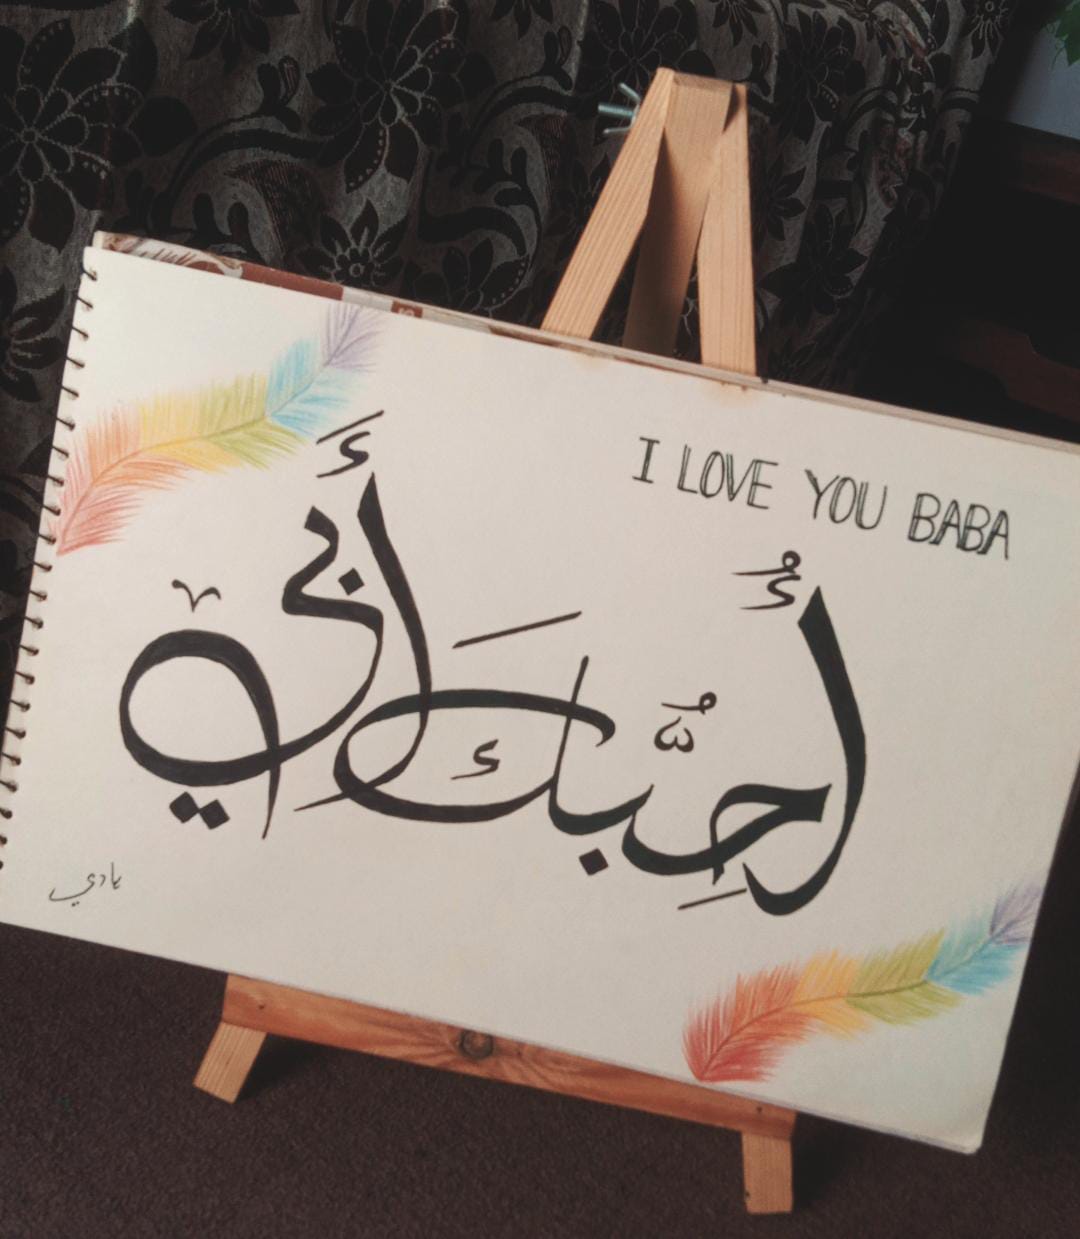 I LOVE YOU BABA
أُحِبُّكَ أَبي